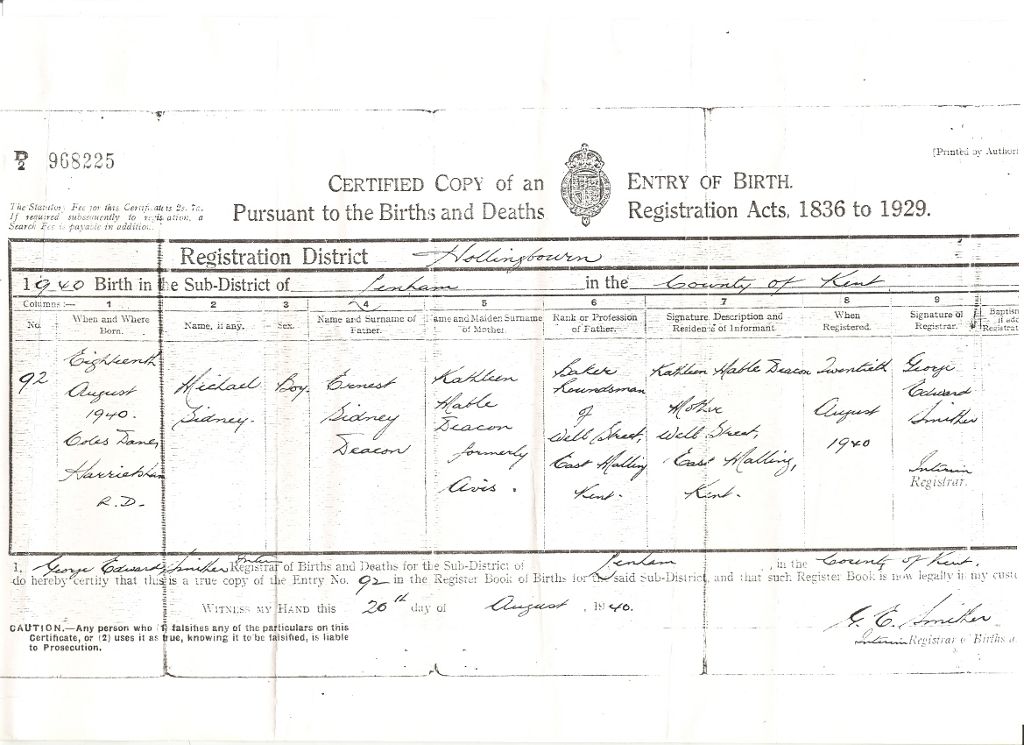 D/2 968225
(Printed by Authori
CERTIFIED COPY of an ENTRY OF BIRTH.
Pursuant to the Births and Deaths Registration Acts, 1836 to 1929.
The Statutory Fee for this Certificate is 2s. 7d.
If required subsequently to registration, a
Search Fee is payable in addition.
Registration District Hollingbourn
1940 Birth in the Sub-District of Lenham in the County of Kent
Columns:— 1 2 3 4 5 6 7 8 9
No. When and Where Born. Name, if any. Sex. Name and Surname of Father. ame and Maiden Surname of Mother. Rank or Profession of Father. Signature, Description and Residence of Informant. When Registered. Signature of Registrar. Baptis if add Registrat
92 Eighteenth August 1940. Coles Dane, Harrietsham R.D.
Michael Sidney.
Boy
Ernest Sidney Deacon
Kathleen Mable Deacon formerly Avis.
Baker Roundsman of Well Street, East Malling Kent.
Kathleen Mable Deacon Mother Well Street, East Malling, Kent.
Twentieth August 1940
George Edward Smither Interim Registrar.
I, George Edward Smither Interim Registrar of Births and Deaths for the Sub-District of Lenham, in the County of Kent.
do hereby certify that this is a true copy of the Entry No. 92 in the Register Book of Births for the said Sub-District, and that such Register Book is now legally in my custo
WITNESS MY HAND this 20th day of August, 1940.
CAUTION.—Any person who (1) falsifies any of the particulars on this
Certificate, or (2) uses it as true, knowing it to be falsified, is liable
to Prosecution.
G. E. Smither
Interim Registrar of Births a